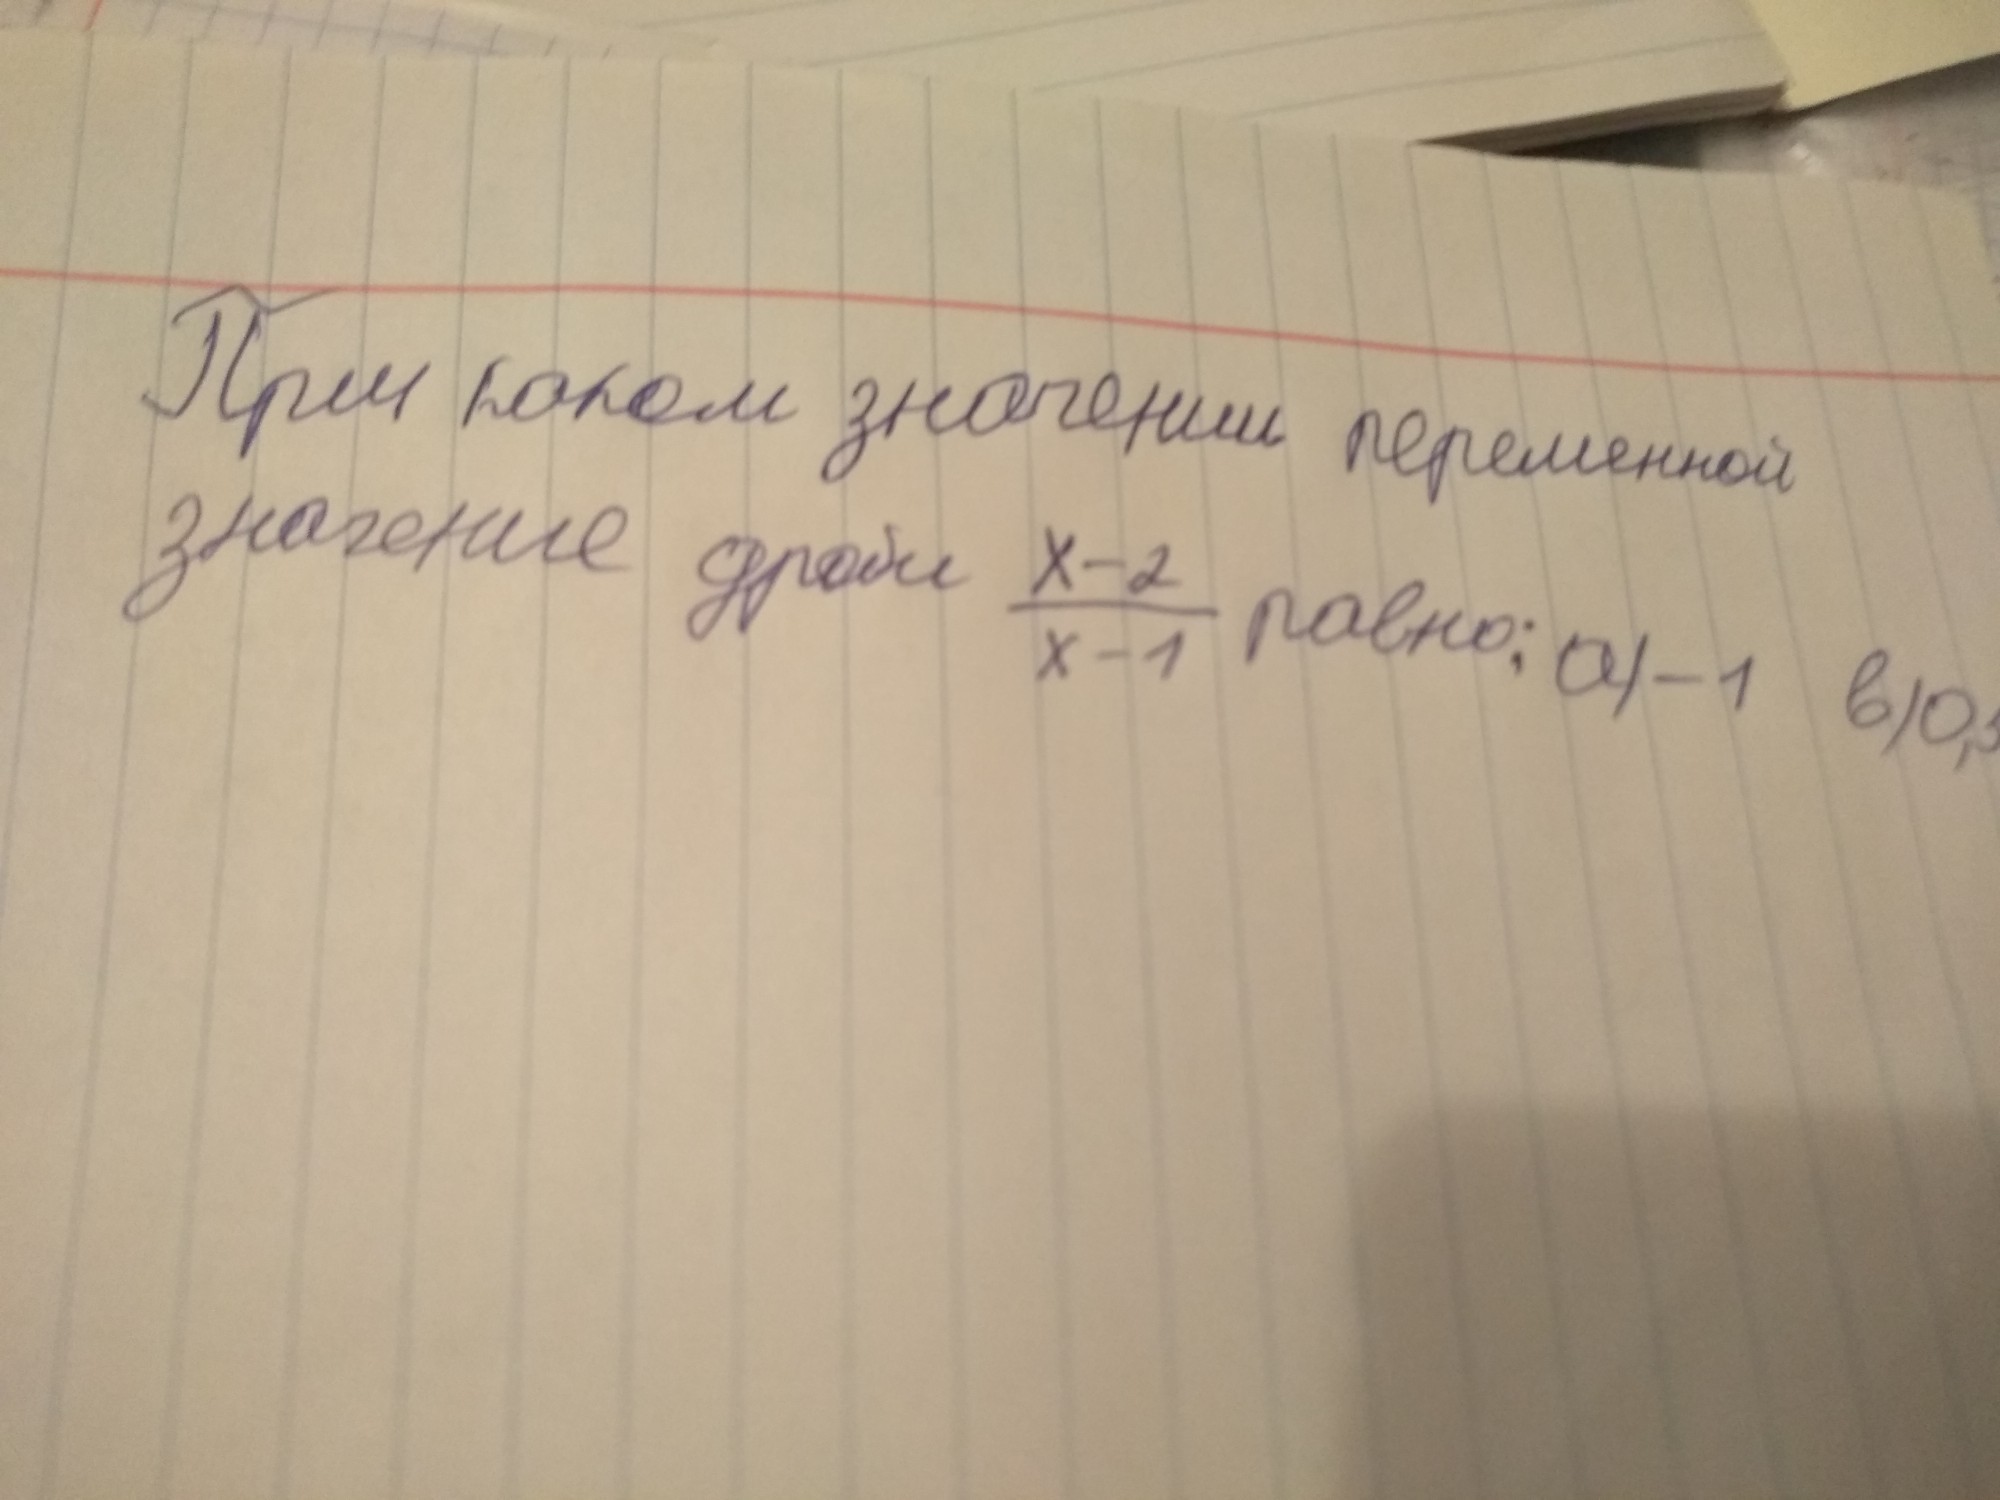 При каком значении переменной
значение дроби x-2/x-1 равно: а) -1 в) 0,